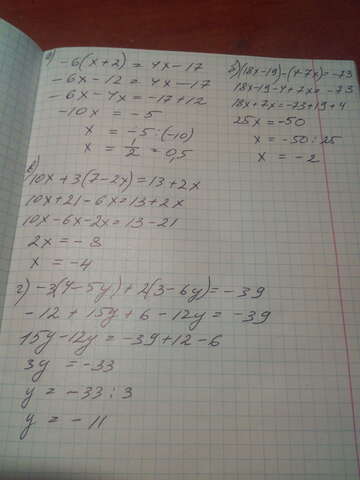 а) -6(x+2) = 4x-17
-6x-12 = 4x-17
-6x-4x = -17+12
-10x = -5
x = -5:(-10)
x = 1/2 = 0,5
б)(18x-19)-(4-7x)=-73
18x-19-4+7x=-73
18x+7x=-73+19+4
25x=-50
x = -50:25
x = -2
в)
10x+3(7-2x)=13+2x
10x+21-6x=13+2x
10x-6x-2x=13-21
2x=-8
x=-4
г) -3(4-5y)+2(3-6y)=-39
-12+15y+6-12y=-39
15y-12y=-39+12-6
3y = -33
y = -33:3
y = -11